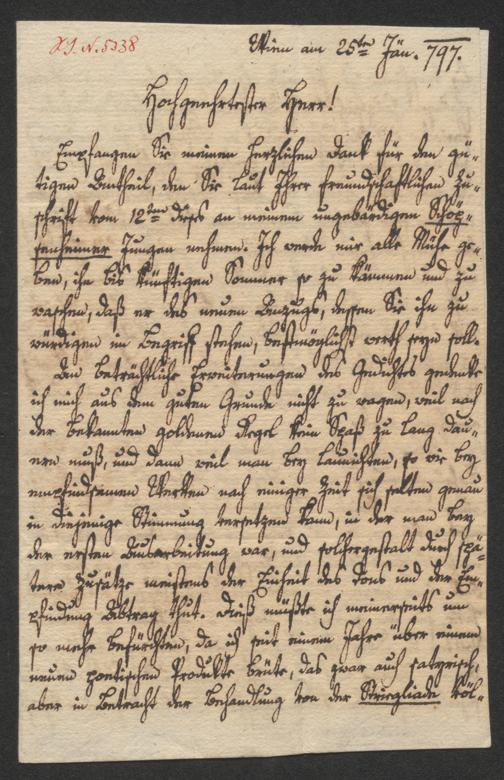 I.N.5338
Wien am 25ten Jän. 797.
Hochgeehrtester Herr!
Empfangen Sie meinen herzlichen Dank für den gü-
tigen Antheil, den Sie laut Ihrer freundschaftlichen Zu-
schrift vom 12ten dieses an meinem ungebärdigen Schöp-
senheimer Jungen nehmen. Ich werde mir alle Mühe ge-
ben, ihn bis künftigen Sommer so zu kämmen und zu
waschen, daß er des neuen Anzugs, dessen Sie ihn zu
würdigen im Begriff stehen, bestmöglichst werth seyn soll.
An beträchtliche Erweiterungen des Gedichtes gedenke
ich mich aus dem guten Grunde nicht zu wagen, weil nach
der bekannten goldenen Regel kein Spaß zu lang dau-
ern muß, und dann weil man bey launichten, so wie bey
empfindsamen Werken nach einiger Zeit sich selten genau
in diejenige Stimmung versetzen kann, in der man bey
der ersten Ausarbeitung war, und solchergestalt durch spä-
tere Zusätze meistens der Einheit des Tons und der Em-
pfindung Abtrag thut. Dieß müßte ich meinerseits um
so mehr befürchten, da ich seit einem Jahre über einem
neuen poetischen Produkte brüte, das zwar auch satyrisch,
aber in Betracht der Behandlung von der Striegliade völ-